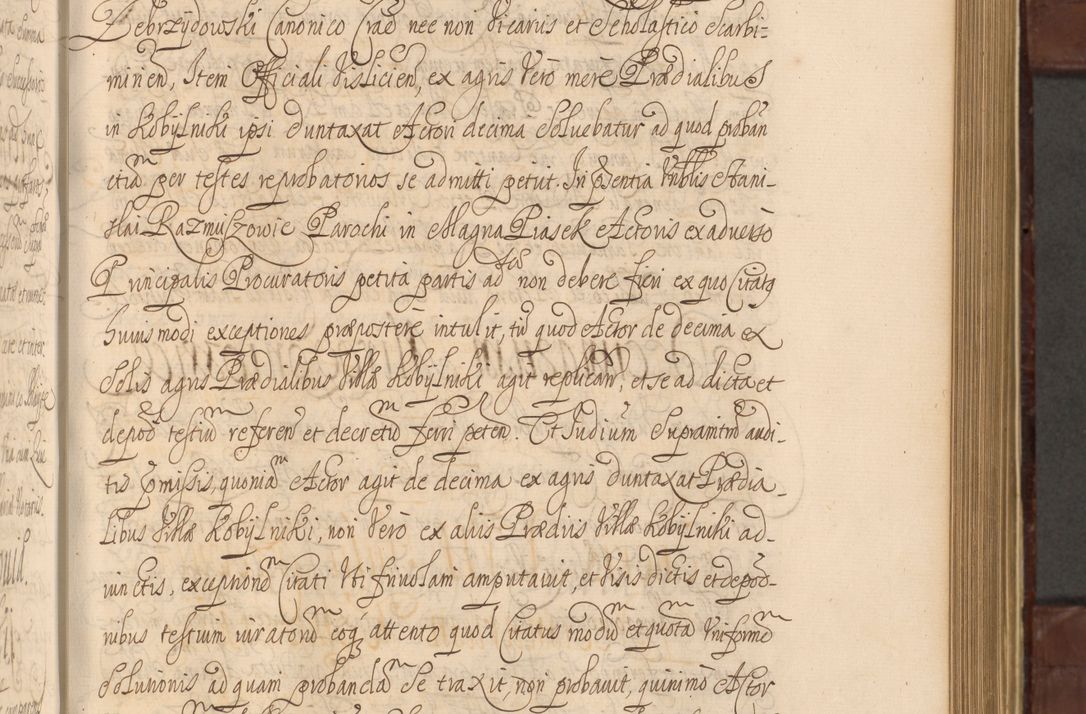 Zebrzÿdowski Canonico Crac nec non Vicariis et Scholastico Scarbi-
minen, Item Officiali Visliciens, ex agris Vero mere Prædialibus
in Kobÿlniki ipsi duntaxat Actori decima Soluebatur ad quod proban
etiam per testes reprobatorios se admitti petiit. In Pñtia Vnblis Stani-
slai Razmuszowic Parochi in Magna Piasek Actoris ex aduerso
Principalis Procuratoris petita partis adsae non debere fieri ex quo Citatg
huiusmodi exceptiones præpostere intulit, tum quod Actor de decima ex
Solis agris Prædialibus Villæ Kobÿlniki agit replican, et se ad dicta et
depoõ testium referen et decretum ferri peten. Et Iudium Supramtm audi-
tis pmissis, quoniam Actor agit de decima ex agris duntaxat Prædia-
libus Villæ Kobÿlniki, non Vero ex aliis Prædiis Villæ Kobÿlniki ad-
iunctis, exceptionem Citati Vti friuolam amputauit, et Visis dictis et depoõ-
nibus testium iuratorum coq attento quod Citatus modum et quotam Vniformem
Solutionis ad quam probandam Se traxit, non probauit, quinimo Actor